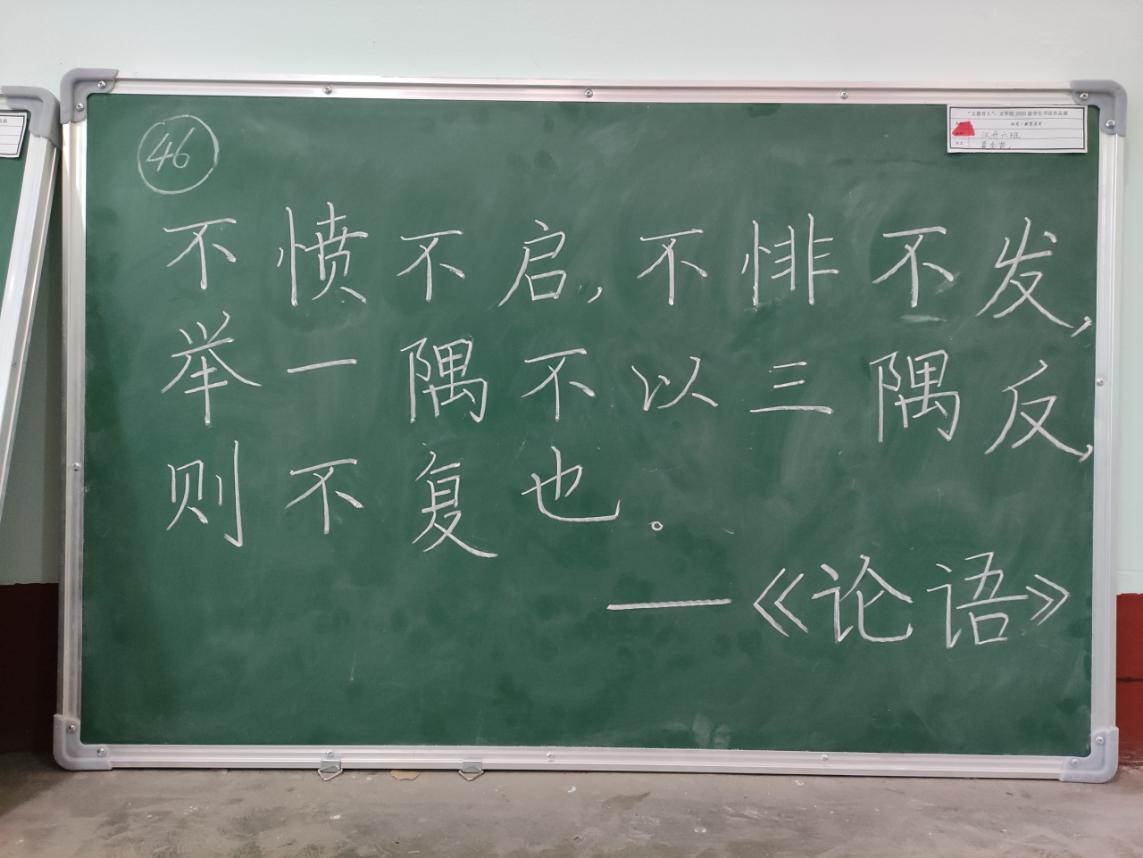 46
不愤不启,不悱不发,
举一隅不以三隅反,
则不复也。
—《论语》
汉升六班